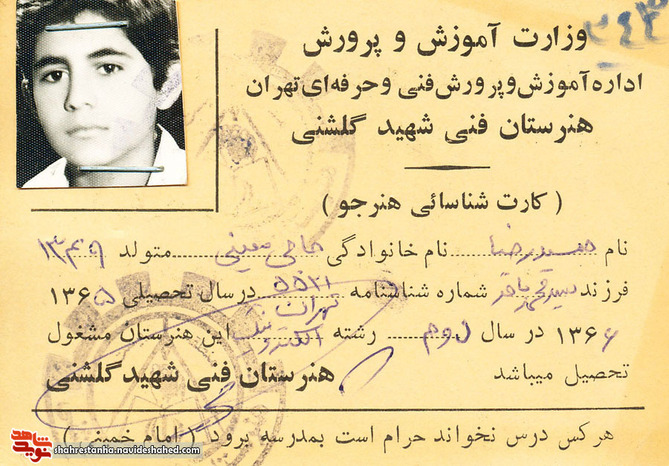 وزارت آموزش و پرورش
۳۴۳
اداره آموزش و پرورش فنی و حرفه‌ای تهران
هنرستان فنی شهید گلشنی
( کارت شناسائی هنرجو )
نام حمیدرضا نام خانوادگی حاجی معینی متولد ۱۳
فرزند سیدمحمدباقر شماره شناسنامه ۵۵۲۱ در سال تحصیلی ۱۳۶۵
تهران
۱۳۶۶ در سال دوم رشته الکترونیک این هنرستان مشغول
تحصیل میباشد هنرستان فنی شهید گلشنی
هر کس درس نخواند حرام است بمدرسه برود ( امام خمینی )
نوید شاهد shahrestanha.navideshahed.com